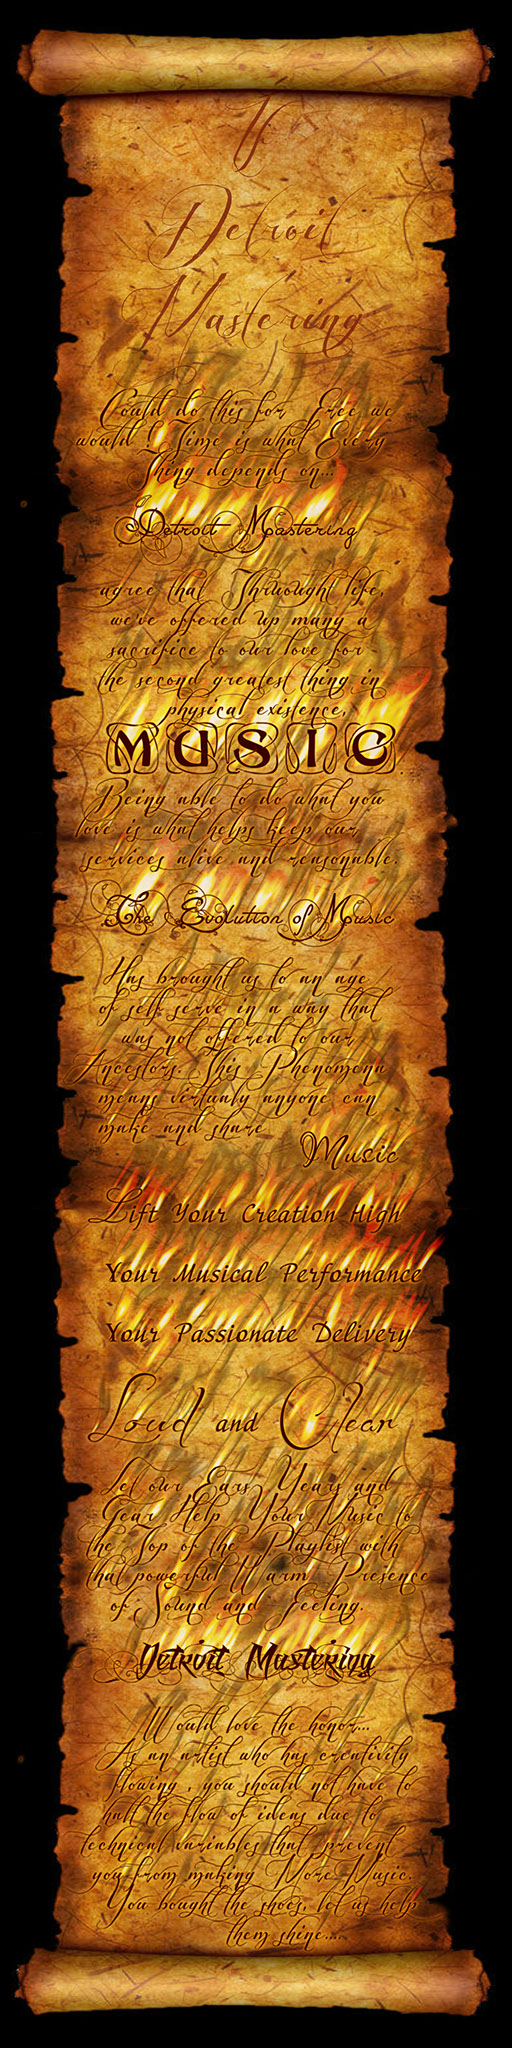 If
Detroit
Mastering
Could do this for Free we
would ! Time is what Every
Thing depends on...
Detroit Mastering
agree that Thruought life,
we've offered up many a
sacrifice to our love for
the second greatest thing in
physical existence,
MUSIC.
Being able to do what you
love is what helps keep our
services alive and reasonable.
The Evolution of Music
Has brought us to an age
of self serve in a way that
was not offered to our
Ancestors. This Phenomena
means virtualy anyone can
make and share
Music
Lift Your Creation High
Your Musical Performance
Your Passionate Delivery
Loud and Clear
Let our Ears, Years and
Gear Help Your Music to
the Top of the Playlist with
that powerful Warm Presence
of Sound and Feeling.
Detroit Mastering
Would love the honor...
As an artist who has creativity
flowing , you should not have to
halt the flow of ideas due to
technical variables that prevent
you from making More Music.
You bought the shoes, let us help
them shine....